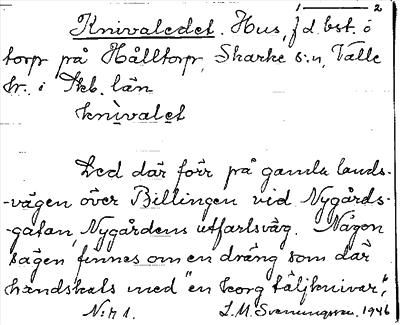 1 — 2
Knivaledet. Hus, f d. bst. o
torp på Hålltorp, Skarke s:n, Valle
hr. i Skb. län
knìvaleṭ
Led där förr på gamla lands-
-vägen över Billingen vid Nygårds-
-gatan, Nygårdens utfartsväg. Någon
sägen finnes om en dräng som där
handskats med "en korg täljknivar",
N:r 1. L. M. Svenungsson. 1946